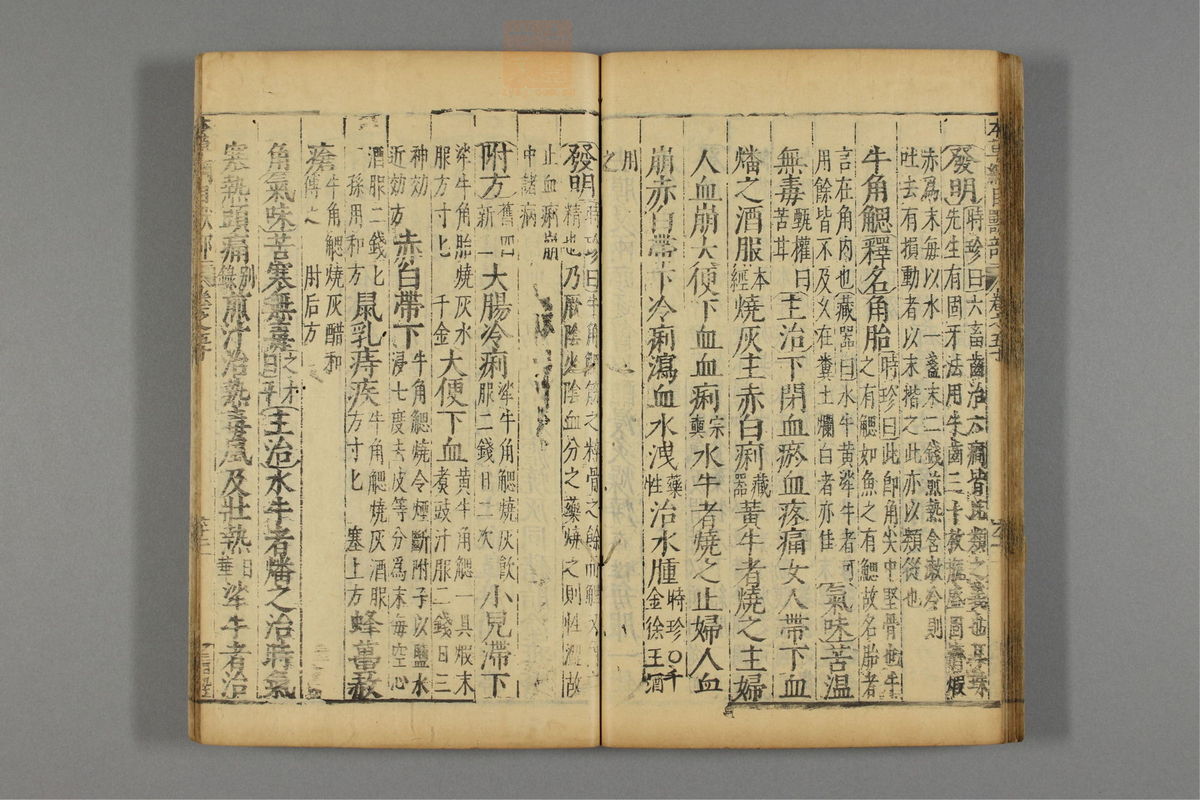 發明時珍曰六畜齒治六癇皆比類之義也耳珠
先生有固牙法用牛齒三十枚瓶盛固濟煅
赤爲末每以水一盞末二錢煎熱含漱冷則
吐去有損動者以末揩之此亦以類從也
牛角䚡釋名角胎時珍曰此即角尖中堅骨也牛
之有䚡如魚之有鰓故名胎者
言在角內也藏器曰水牛黃㸿牛者可
用餘皆不及久在糞土爛白者亦佳氣味苦溫
無毒甄權曰苦甘主治下閉血瘀血疼痛女人帶下血
燔之酒服本經燒灰主赤白痢藏器黃牛者燒之主婦
人血崩大便下血血痢宗奭水牛者燒之止婦人血
崩赤白帶下冷痢瀉血水洩藥性治水腫時珍○千金徐王酒
用之
發明時珍曰牛角䚡筋之粹骨之餘而䚡
精也乃厥陰少陰血分之藥燒之則性澀故
止血痢崩
中諸病
附方舊四新一大腸冷痢㸿牛角䚡燒灰飲服二錢日二次小兒滯下
㸿牛角胎燒灰水服方寸匕千金大便下血黃牛角䚡一具煅末煮豉汁服二錢日三
神効近効方赤白帶下牛角䚡燒令煙斷附子以鹽水浸七度去皮等分爲末每空心
酒服二錢匕孫用和方鼠乳痔疾牛角䚡燒灰酒服方寸匕塞上方蜂蠆螫
瘡牛角䚡燒灰醋和傅之肘后方
角氣味苦寒無毒之才曰平主治水牛者燔之治時氣
寒熱頭痛別錄煎汁治熱毒風及壯熱日華㸿牛者治